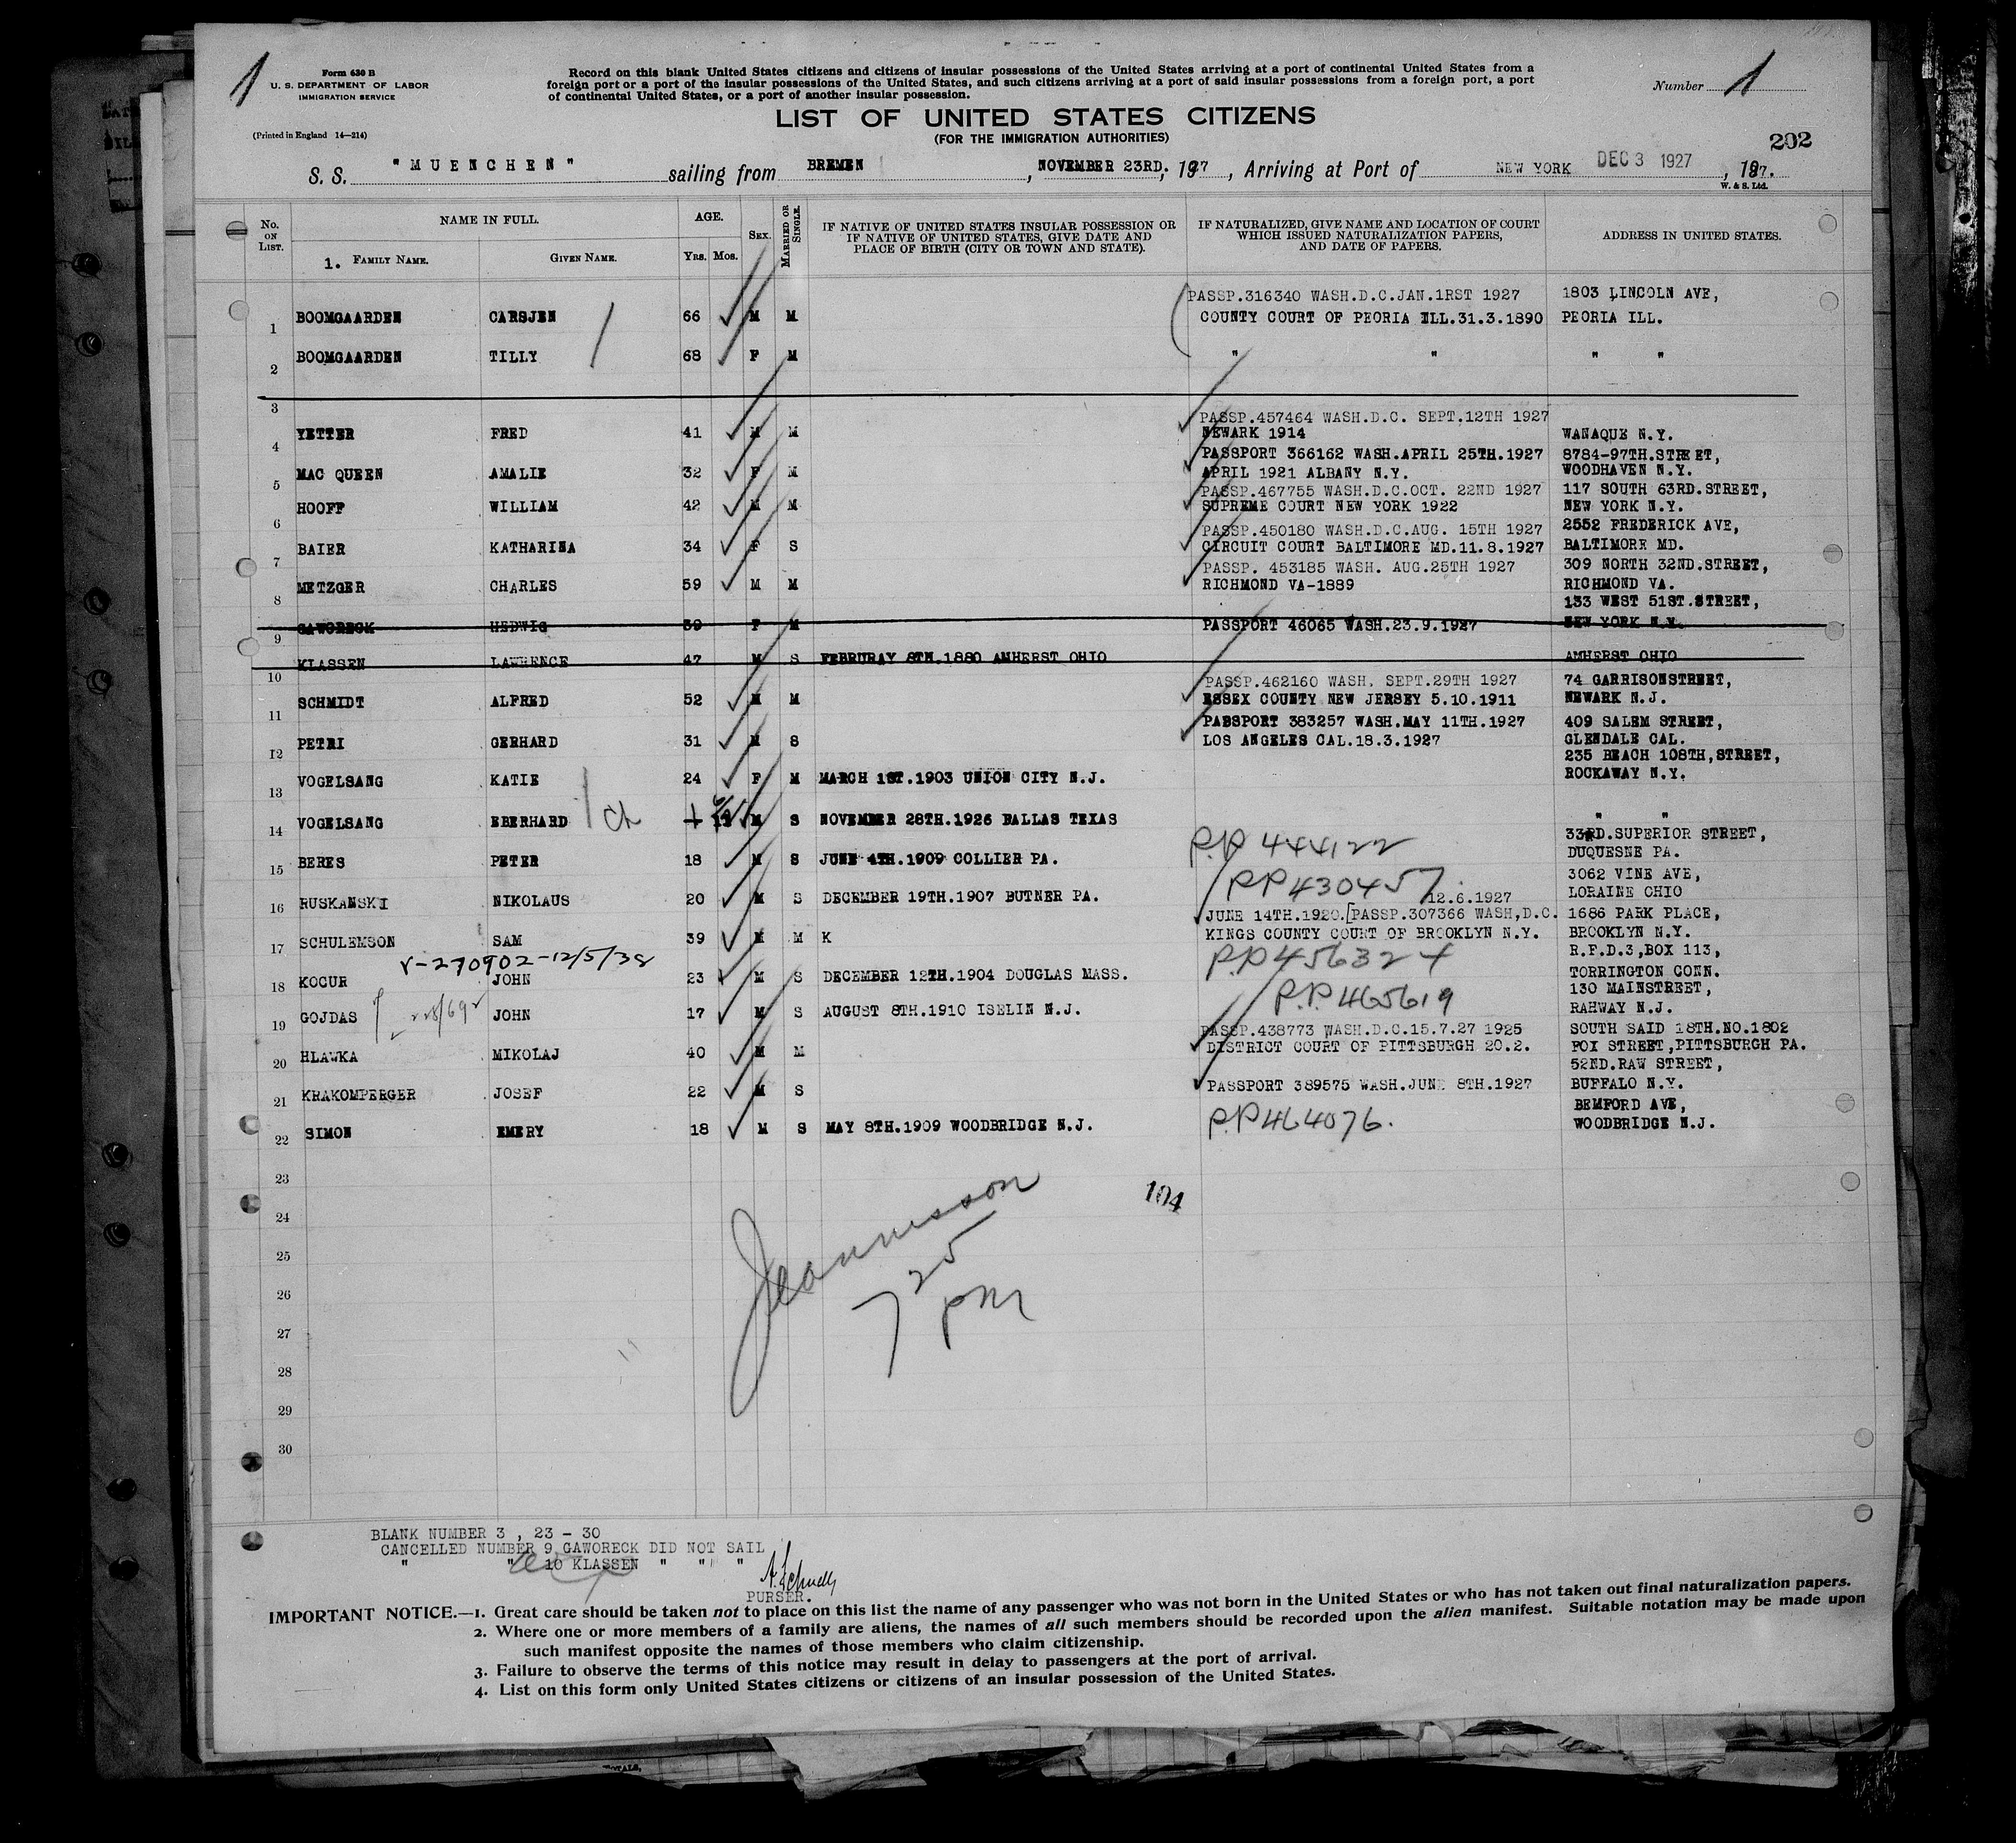 1
Form 630 B
U. S. DEPARTMENT OF LABOR
IMMIGRATION SERVICE
(Printed in England 14—214)
Record on this blank United States citizens and citizens of insular possessions of the United States arriving at a port of continental United States from a
foreign port or a port of the insular possessions of the United States, and such citizens arriving at a port of said insular possessions from a foreign port, a port
of continental United States, or a port of another insular possession.
Number 1
LIST OF UNITED STATES CITIZENS
(FOR THE IMMIGRATION AUTHORITIES)
202
S. S. "MUENCHEN" sailing from BREMEN, NOVEMBER 23RD, 1927, Arriving at Port of NEW YORK DEC 3 1927, 1927.
W. & S. Ltd.
No. ON LIST. NAME IN FULL. AGE. SEX. MARRIED OR SINGLE. IF NATIVE OF UNITED STATES INSULAR POSSESSION OR IF NATIVE OF UNITED STATES, GIVE DATE AND PLACE OF BIRTH (CITY OR TOWN AND STATE). IF NATURALIZED, GIVE NAME AND LOCATION OF COURT WHICH ISSUED NATURALIZATION PAPERS, AND DATE OF PAPERS. ADDRESS IN UNITED STATES.
1. FAMILY NAME. GIVEN NAME. YRS. MOS.
PASSP.316340 WASH.D.C.JAN.1RST 1927 1803 LINCOLN AVE,
1 BOOMGAARDEN CARSJEN 66 M M COUNTY COURT OF PEORIA ILL.31.3.1890 PEORIA ILL.
2 BOOMGAARDEN TILLY 68 F M " " " "
3
PASSP.457464 WASH.D.C. SEPT.12TH 1927
4 YETTER FRED 41 M M NEWARK 1914 WANAQUE N.Y.
PASSPORT 366162 WASH.APRIL 25TH.1927 8784-97TH.STREET,
5 MAC QUEEN AMALIE 32 F M APRIL 1921 ALBANY N.Y. WOODHAVEN N.Y.
PASSP.467755 WASH.D.C.OCT. 22ND 1927 117 SOUTH 63RD.STREET,
6 HOOFF WILLIAM 42 M M SUPREME COURT NEW YORK 1922 NEW YORK N.Y.
PASSP.450180 WASH.D.C.AUG. 15TH 1927 2552 FREDERICK AVE,
7 BAIER KATHARINA 34 F S CIRCUIT COURT BALTIMORE MD.11.8.1927 BALTIMORE MD.
PASSP. 453185 WASH. AUG.25TH 1927 309 NORTH 32ND.STREET,
8 METZGER CHARLES 59 M M RICHMOND VA-1889 RICHMOND VA.
133 WEST 51ST.STREET,
9 GAWORECK HEDWIG 39 F M PASSPORT 46065 WASH.23.9.1927 NEW YORK N.Y.
10 KLASSEN LAWRENCE 47 M S FEBRURAY 8TH.1880 AMHERST OHIO AMHERST OHIO
PASSP.462160 WASH, SEPT.29TH 1927 74 GARRISONSTREET,
11 SCHMIDT ALFRED 52 M M ESSEX COUNTY NEW JERSEY 5.10.1911 NEWARK N.J.
PASSPORT 383257 WASH.MAY 11TH.1927 409 SALEM STREET,
12 PETRI GERHARD 31 M S LOS ANGELES CAL.18.3.1927 GLENDALE CAL.
235 BEACH 108TH,STREET,
13 VOGELSANG KATIE 24 F M MARCH 1ST.1903 UNION CITY N.J. ROCKAWAY N.Y.
14 VOGELSANG EBERHARD ch 11 M S NOVEMBER 28TH.1926 DALLAS TEXAS " "
P.P 444122 33RD.SUPERIOR STREET,
15 BERES PETER 18 M S JUNE 4TH.1909 COLLIER PA. DUQUESNE PA.
PP430457. 3062 VINE AVE,
16 RUSKANSKI NIKOLAUS 20 M S DECEMBER 19TH.1907 BUTNER PA. 12.6.1927 LORAINE OHIO
JUNE 14TH.1920.[PASSP.307366 WASH,D.C. 1686 PARK PLACE,
17 SCHULEMSON SAM 39 M M K KINGS COUNTY COURT OF BROOKLYN N.Y. BROOKLYN N.Y.
V-270902-12/5/38 P.P456324 R.F.D.3,BOX 113,
18 KOCUR JOHN 23 M S DECEMBER 12TH.1904 DOUGLAS MASS. TORRINGTON CONN.
P.P.465619 130 MAINSTREET,
19 GOJDAS JOHN 17 M S AUGUST 8TH.1910 ISELIN N.J. RAHWAY N.J.
PASSP.438773 WASH.D.C.15.7.27 1925 SOUTH SAID 18TH.NO.1802
20 HLAWKA MIKOLAJ 40 M M DISTRICT COURT OF PITTSBURGH 20.2. FOX STREET,PITTSBURGH PA.
52ND.RAW STREET,
21 KRAKOMPERGER JOSEF 22 M S PASSPORT 389575 WASH.JUNE 8TH.1927 BUFFALO N.Y.
BEMFORD AVE,
22 SIMON EMERY 18 M S MAY 8TH.1909 WOODBRIDGE N.J. P.P464076. WOODBRIDGE N.J.
23
104
24
25
26
7 25 pm
27
28
29
30
BLANK NUMBER 3 , 23 - 30
CANCELLED NUMBER 9 GAWORECK DID NOT SAIL
" " 10 KLASSEN " " "
PURSER.
IMPORTANT NOTICE.—1. Great care should be taken not to place on this list the name of any passenger who was not born in the United States or who has not taken out final naturalization papers.
2. Where one or more members of a family are aliens, the names of all such members should be recorded upon the alien manifest. Suitable notation may be made upon
such manifest opposite the names of those members who claim citizenship.
3. Failure to observe the terms of this notice may result in delay to passengers at the port of arrival.
4. List on this form only United States citizens or citizens of an insular possession of the United States.